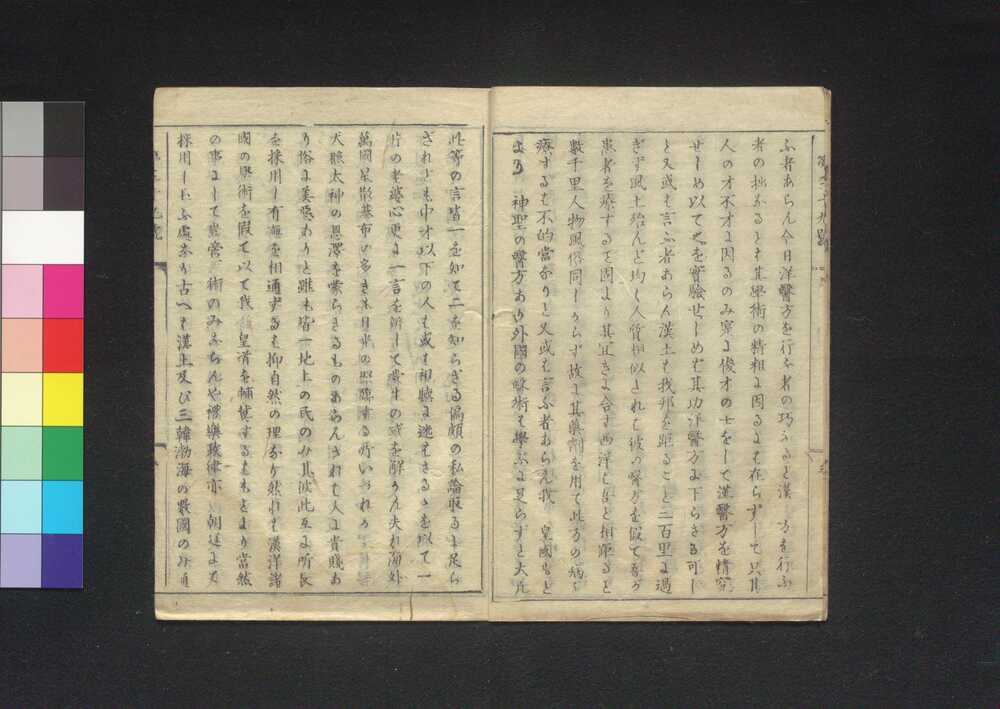 ふ者あらん今日洋醫方を行ふ者の巧なると漢　方を行ふ
者の拙なるとは其學術の精粗に因るにも在らずして只其
人の才不才に因るのみ寧ろ俊才の士をして漢醫方を精究
せしめ以て之を實驗せしめは其功洋醫方に下らさる可し
と又或は言ふ者あらん漢土は我邦を距ること二百里に過
ぎず風土殆んど均し人質相似されは彼の醫方を假て吾が
患者を療するは固より其宜きに合す西洋は吾と相距ると
數千里人物風俗同しからず故に其藥劑を用て此方の病を
療するは不的當なりと又或は言ふ者あらん我　皇國もと
より　神聖の醫方あり外國の醫術は學ふに足らずと大凡
此等の言皆一を知て二を知らざる偏頗の私論取るに足ら
ざれども中才以下の人は或は相聽に迷はさるゝを以て一
片の老婆心更に一言を附して衆生の惑を解かん夫れ海外
萬國星散碁布の多きも日米の照臨する所いづれか
大眼太神の恩澤を蒙らさるものあらんされは人に貴賤あ
り俗に美惡ありと雖も皆一地上の民のみ其彼此互に所長
を採用し有無を相通ずるは抑自然の理なり然れは漢洋諸
國の學術を假て以て我　皇漸を輔翼するはもとより當然
の事にして啻管　術のみならんや禮樂政律亦　朝廷にて
採用し玉ふ處あり古へは漢土及び三韓渤海の數國のみ通